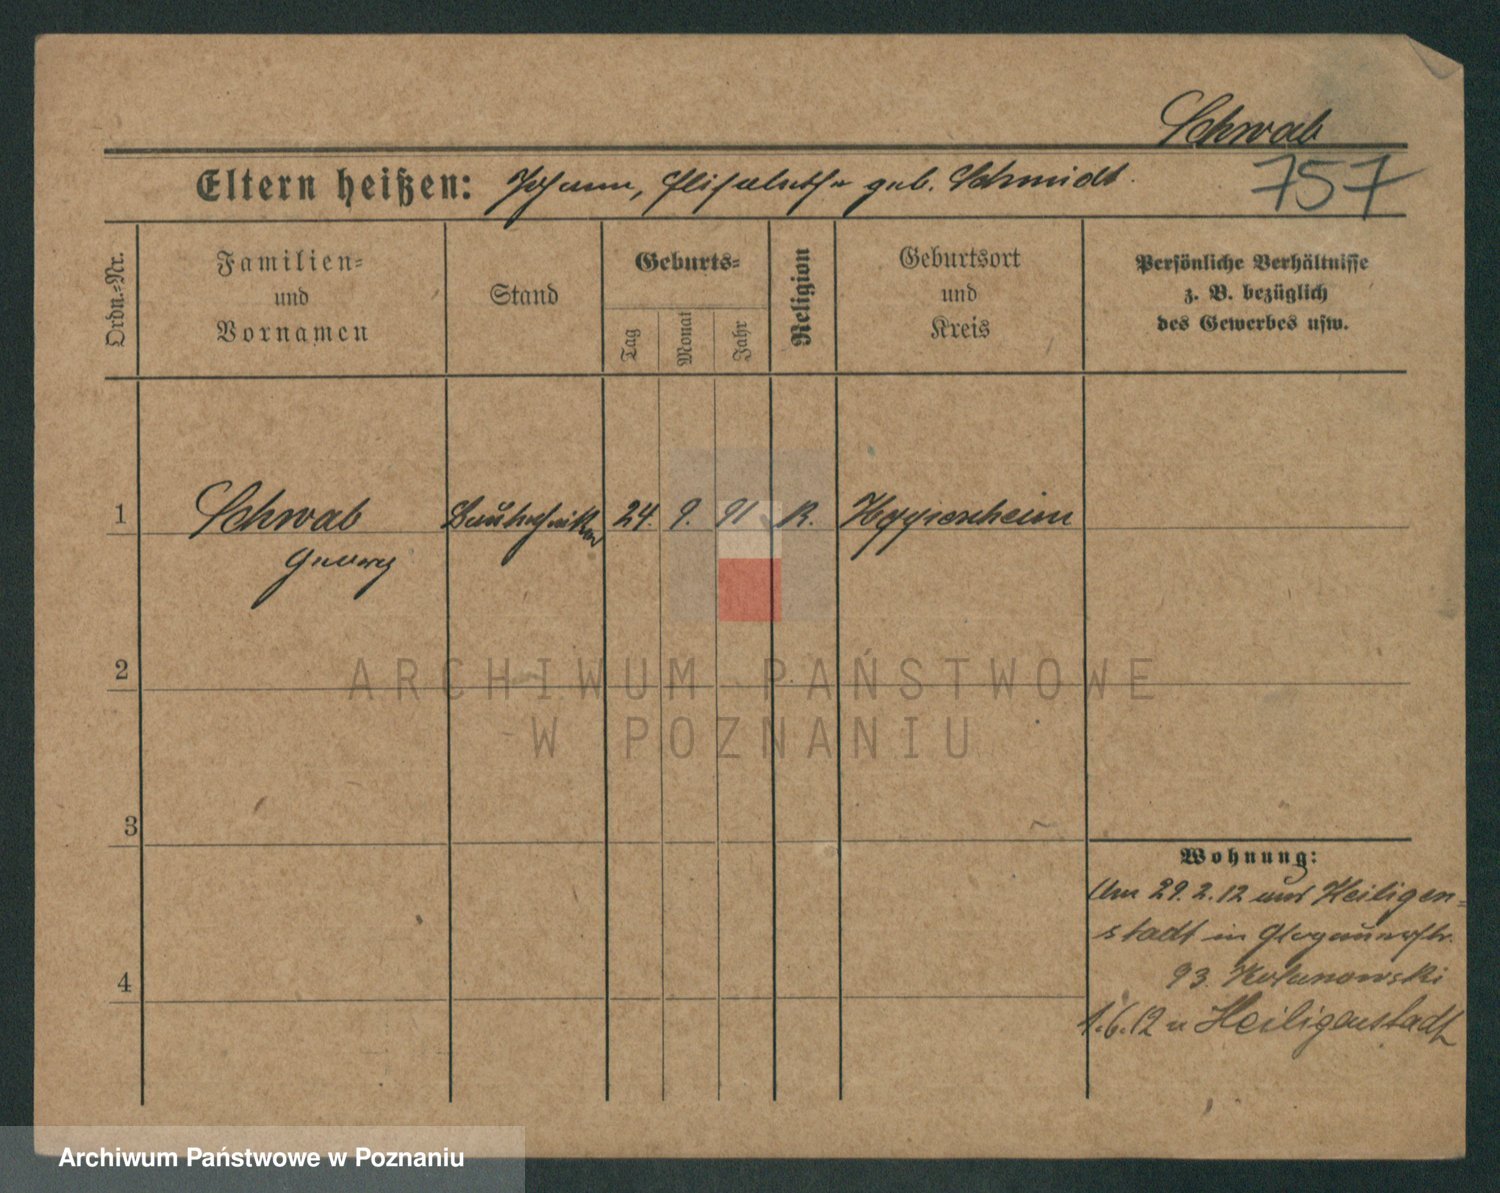 Schwab
Eltern heißen: Johann, Elisabeth geb. Schmidt.
757
Ordn.-Nr.
Familien-
und
Vornamen
Stand
Geburts-
Tag
Monat
Jahr
Religion
Geburtsort
und
Kreis
Persönliche Verhältnisse
z. B. bezüglich
des Gewerbes usw.
1 Schwab Bautechniker 24. 9. 91 K.
Georg
2
3
4
Wohnung:
Am 29.2.12 aus Heiligen-
stadt in Glogauerstr.
93.
1.6.12 n Heiligenstadt
ARCHIWUM PAŃSTWOWE
W POZNANIU
Archiwum Państwowe w Poznaniu